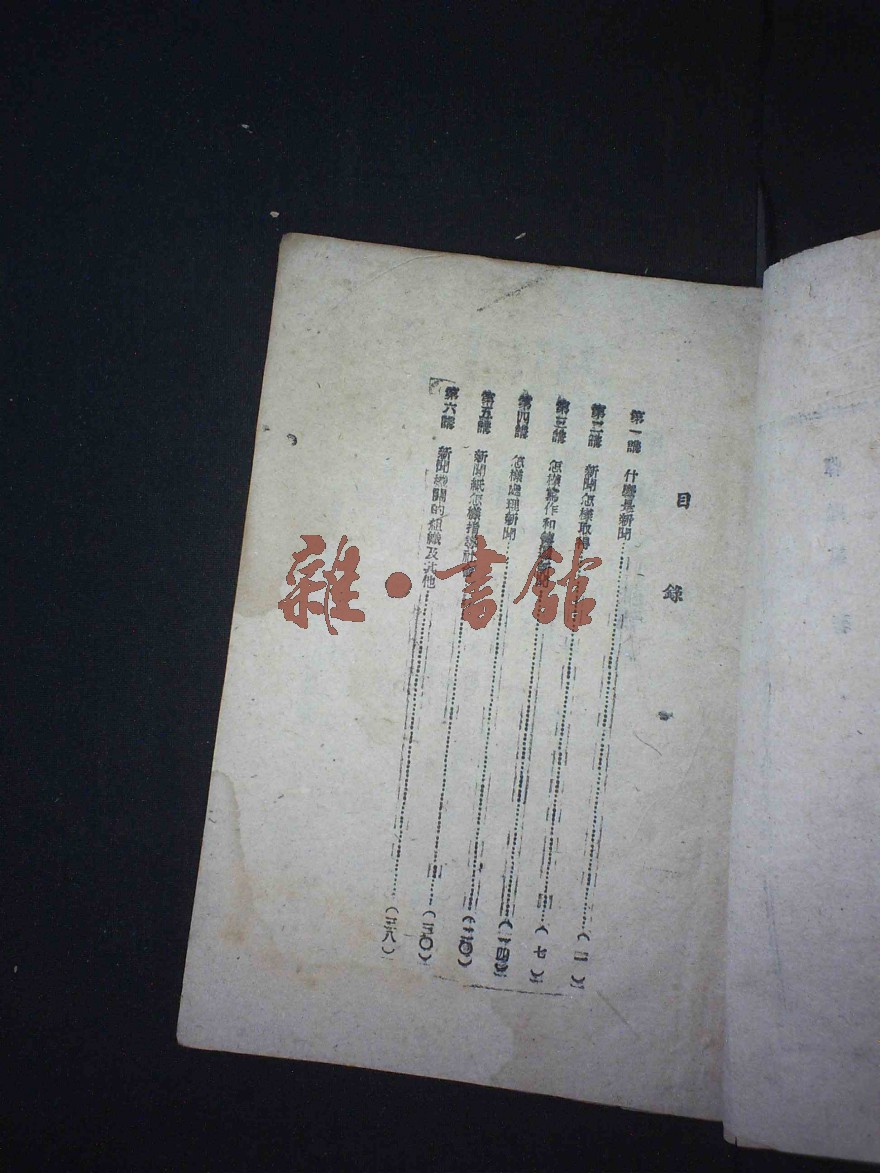 目錄
第一講 什麼是新聞………(二)
第二講 新聞怎樣取得………(七)
第三講 怎樣寫作和
第四講 怎樣處理新聞………(二〇)
第五講 新聞紙怎樣指導社………(三〇)
第六講 新聞機關的組織及其他………(三八)
雜·書館